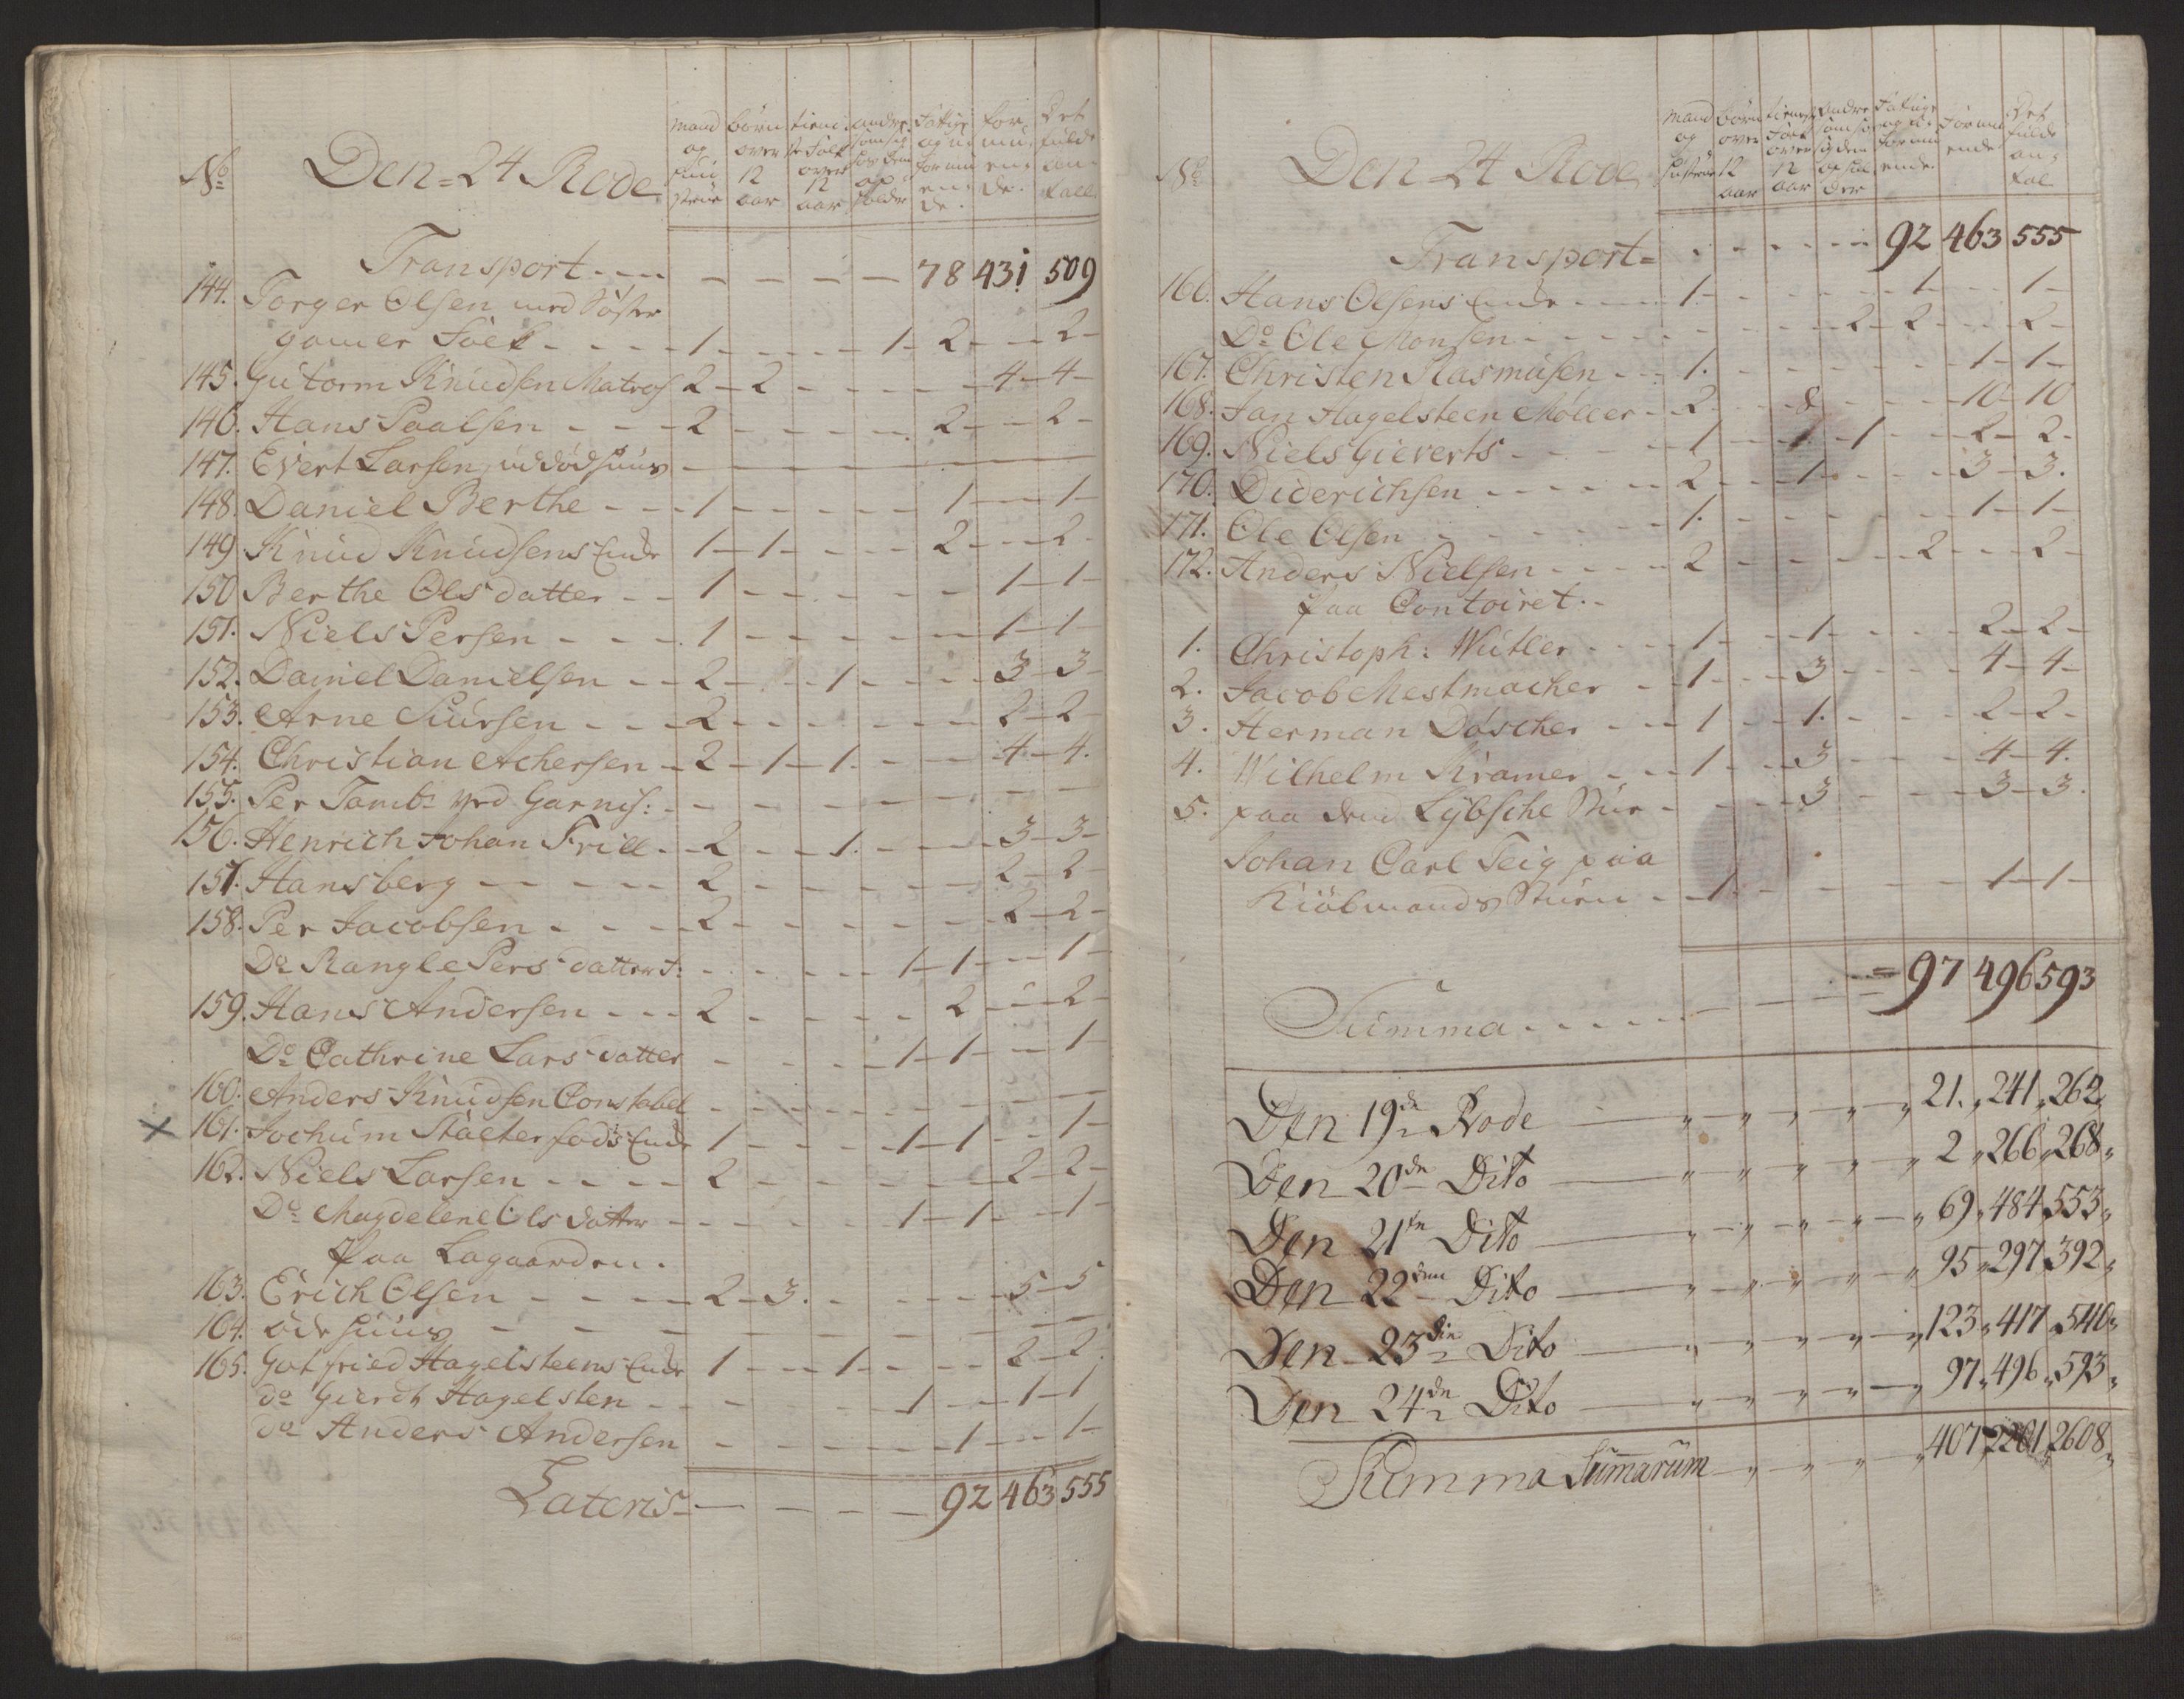 No Den 24 Rode
Mand og Hustrue | børn over 12 aar | tieniste Folk over 12 aar | andre som sig hos dem opholder | Fattige og uformuende | formuende | Det fulde antall
Transport - - - - 78 431 509
144. Torger Olsen med Søster
gamer Foel - - - 1 - - - 1 - 2 - - 2 -
145. Gutorm Knudsen Matros 2 - 2 - - - 4 - 4 -
146. Hans Paalsen - - - 2 - - - 2 - - 2 -
147. Evert Larsen uddød huus - - - -
148. Daniel Berthe - - - 1 - - - 1 - - 1 -
149 Knud Knudsens Enke 1 - 1 - - - 2 - - 2 -
150 Berthe Ols datter - - 1 - - - - 1 - 1 -
151. Niels Persen - - - 1 - - - - 1 - 1
152. Dainel Danielsen - - 2 - - 1 - - - 3 - 3 -
153. Arne Siursen - - - 2 - - - - 2 - 2 -
154. Christian Achersen - 2 - 1 - 1 - - - 4 - 4.
155. Per Tamb: ved Garnis: - - - - - -
156. Henrich Johan Frill - - 2 - - 1. - - - 3 - 3 -
157. Hansberg - - - - 2 - - - - 2 - 2 -
158. Per Jacobsen - - - - 2 - - - - 2 - 2 -
Do Rangle Pers datter - - - - 1 - 1 - - 1 -
159. Hans Andersen - - - 2 - - - 2 - - 2 -
Do Cathrine Lars datter - - - 1 - 1 - - 1 -
160. Anders Knudsen Constabel - - - - - -
x 161. Jochum Enke 1 - - - 1 - 1 - - 1 -
162. Niels Larsen - - - - 2 - - - - 2 - 2 -
Do Magdelene Ols datter - - - - 1 - 1 - - 1 -
Paa Lagaarden.
163. Erich Olsen - - - - 2 - 3. - - - 5 - 5
164. øde huus - - - - - -
165. Gotfried Hagelsteens Enke 1 - - 1 - - - 2 - 2.
do Gierdt Hagelsten - - - 1 - - 1 - 1
do Anders Andersen - - - - 1 - - 1 -
Lateris - - - - 92 463 555
No Den 24 Rode
Mand og Hustrue | Børn over 12 aar | tieneste Folk over 12 aar | Andre som hos sig dem opholder | Fattige og uformuende | Formuende | Det fulde antal
Transport - - - - - 92 463 555
166. Hans Olsens Enke - - - 1. - - - - 1 - - 1 -
Do Ole Monsen - - - - - 2 - 2 - - 2 -
167. Christen Rasmusen - - 1. - - - - 1 - 1 -
168. Jan Hagelsteen Møller - 2 - - 8 - - - 10 - 10
169. Niels Gieverts - - - - 1 - - 1 - 1 - - 2 - 2 -
170. Diderichsen - - - - 2 - - 1 - - - 3 - 3.
171. Ole Olsen - - - - 1. - - - - 1 - 1 -
172. Anders Nielsen - - - - 2 - - - 2 - - 2 -
Paa Contoiret.
1. Christoph: Wutler - - - 1 - - 1 - - - 2 - 2 -
2. Jacob Mestmacher - - 1 - - 3 - - - 4 - 4 -
3. Herman Döscher - - 1 - - 1. - - - 2 - 2 -
4. Wilhelm Kramer - - 1 - - 3 - - - 4 - 4.
5. paa den Lybsche Stue - - - 3 - - - 3 - 3.
Johan Carl Teig paa
Kiøbmands Stuen - - 1 - - - - 1 - 1 -
Summa - - - - = 97 496 593
Den 19de Rode — " " " " " 21. " 241 " 262
Den 20de Dito — " " " " " 2 " 266 " 268 "
Den 21te Dito — " " " " " 69 " 484 553 "
Den 22den Dito — " " " " " 95 " 297 392 "
Den 23die Dito — " " " " " 123 " 417 " 540 "
Den 24de Dito — " " " " " 97 " 496 " 593 "
Summa Sumarum — " " " " 407 " 2201 " 2608 "